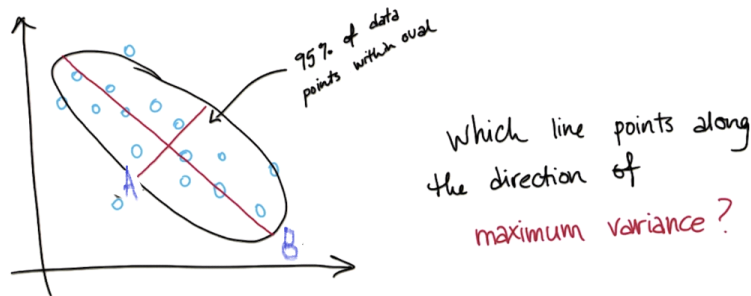 95% of data
points within oval
Which line points along
the direction of
maximum variance?
A
B